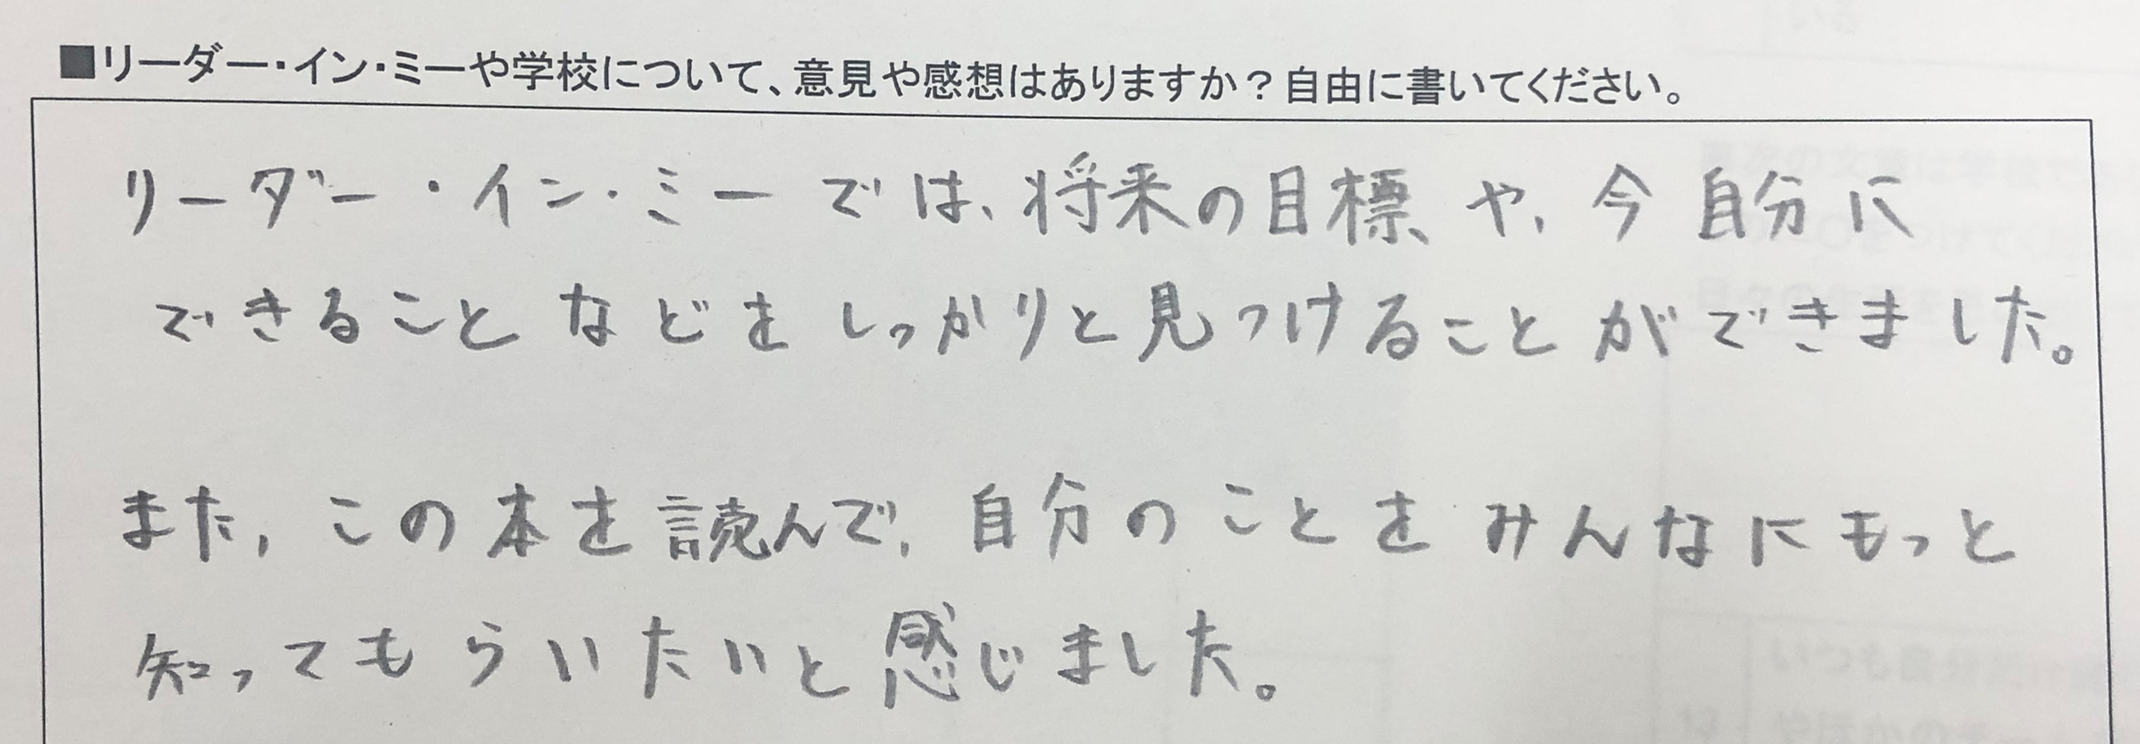 ■リーダー・イン・ミーや学校について、意見や感想はありますか？自由に書いてください。
リーダー・イン・ミーでは、将来の目標や、今自分に
できることなどをしっかりと見つけることができました。
また、この本を読んで、自分のことをみんなにもっと
知ってもらいたいと感じました。